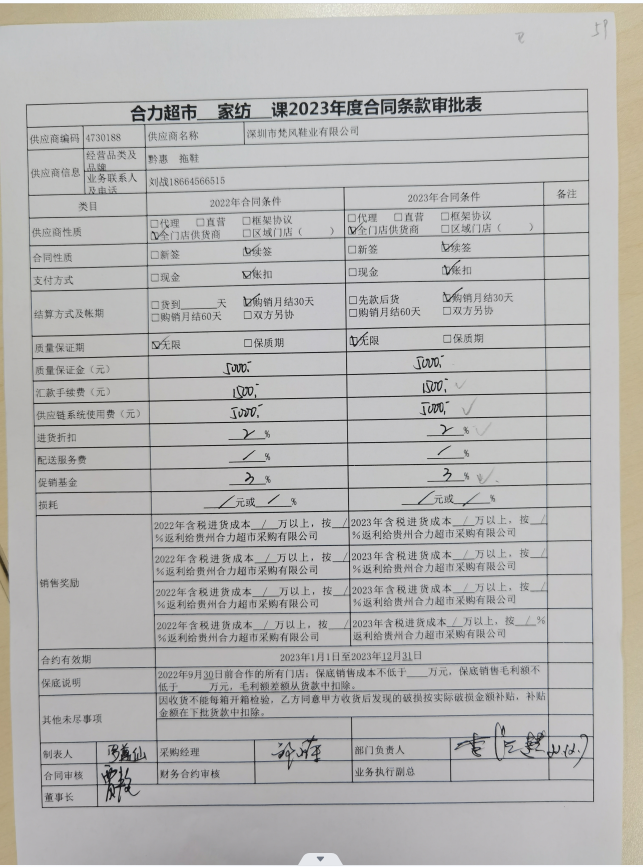 59
合力超市 家纺 课2023年度合同条款审批表
供应商编码 4730188 供应商名称 深圳市梵风鞋业有限公司
供应商信息 经营品类及品牌 黔惠 拖鞋
业务联系人及电话 刘战18664566515
类目 2022年合同条件 2023年合同条件 备注
供应商性质 □代理 □直营 □框架协议 □代理 □直营 □框架协议
☑全门店供货商 □区域门店（ ） ☑全门店供货商 □区域门店（ ）
合同性质 □新签 ☑续签 □新签 ☑续签
支付方式 □现金 ☑账扣 □现金 ☑账扣
结算方式及帐期 □货到____天 ☑购销月结30天 □先款后货 ☑购销月结30天
□购销月结60天 □双方另协 □购销月结60天 □双方另协
质量保证期 ☑无限 □保质期 ☑无限 □保质期
质量保证金（元） 5000,- 5000,-
汇款手续费（元） 1500,- 1500,- ✓
供应链系统使用费（元） 5000,- 5000,- ✓
进货折扣 2 % 2 % ✓
配送服务费 / % / %
促销基金 3 % 3 % ✓
损耗 / 元或 / % / 元或 / %
销售奖励
2022年含税进货成本 / 万以上，按 / 2023年含税进货成本 / 万以上，按 /
%返利给贵州合力超市采购有限公司 %返利给贵州合力超市采购有限公司
2022年含税进货成本 / 万以上，按 / 2023年含税进货成本 / 万以上，按 /
%返利给贵州合力超市采购有限公司 %返利给贵州合力超市采购有限公司
2022年含税进货成本 / 万以上，按 / 2023年含税进货成本 / 万以上，按 /
%返利给贵州合力超市采购有限公司 %返利给贵州合力超市采购有限公司
2022年含税进货成本 / 万以上，按 / 2023年含税进货成本 / 万以上，按 / %
%返利给贵州合力超市采购有限公司 返利给贵州合力超市采购有限公司
合约有效期 2023年1月1日至2023年12月31日
保底说明 2022年9月30日前合作的所有门店：保底销售成本不低于____万元，保底销售毛利额不
低于______万元，毛利额差额从货款中扣除。
其他未尽事项 因收货不能每箱开箱检验，乙方同意甲方收货后发现的破损按实际破损金额补贴，补贴
金额在下批货款中扣除。
制表人 采购经理 部门负责人
合同审核 财务合约审核 业务执行副总
董事长